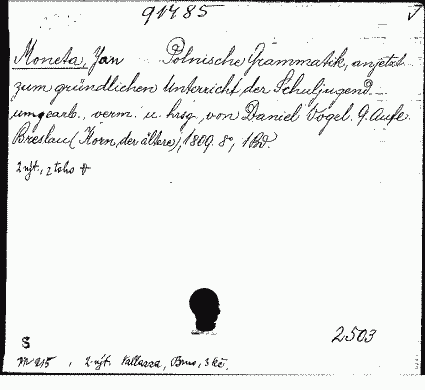 91485
Moneta, Jan Polnische Grammatik, anjetzt
zum gründlichen Unterricht der Schuljugend
umgearb., verm. u. hrsg. von Daniel Vogel. 9. Aufl.
Breslau (Korn, der ältere), 1809. 8°, 1 Bd.
2503
S
, 2 njt. , Brno, 3 Kč.